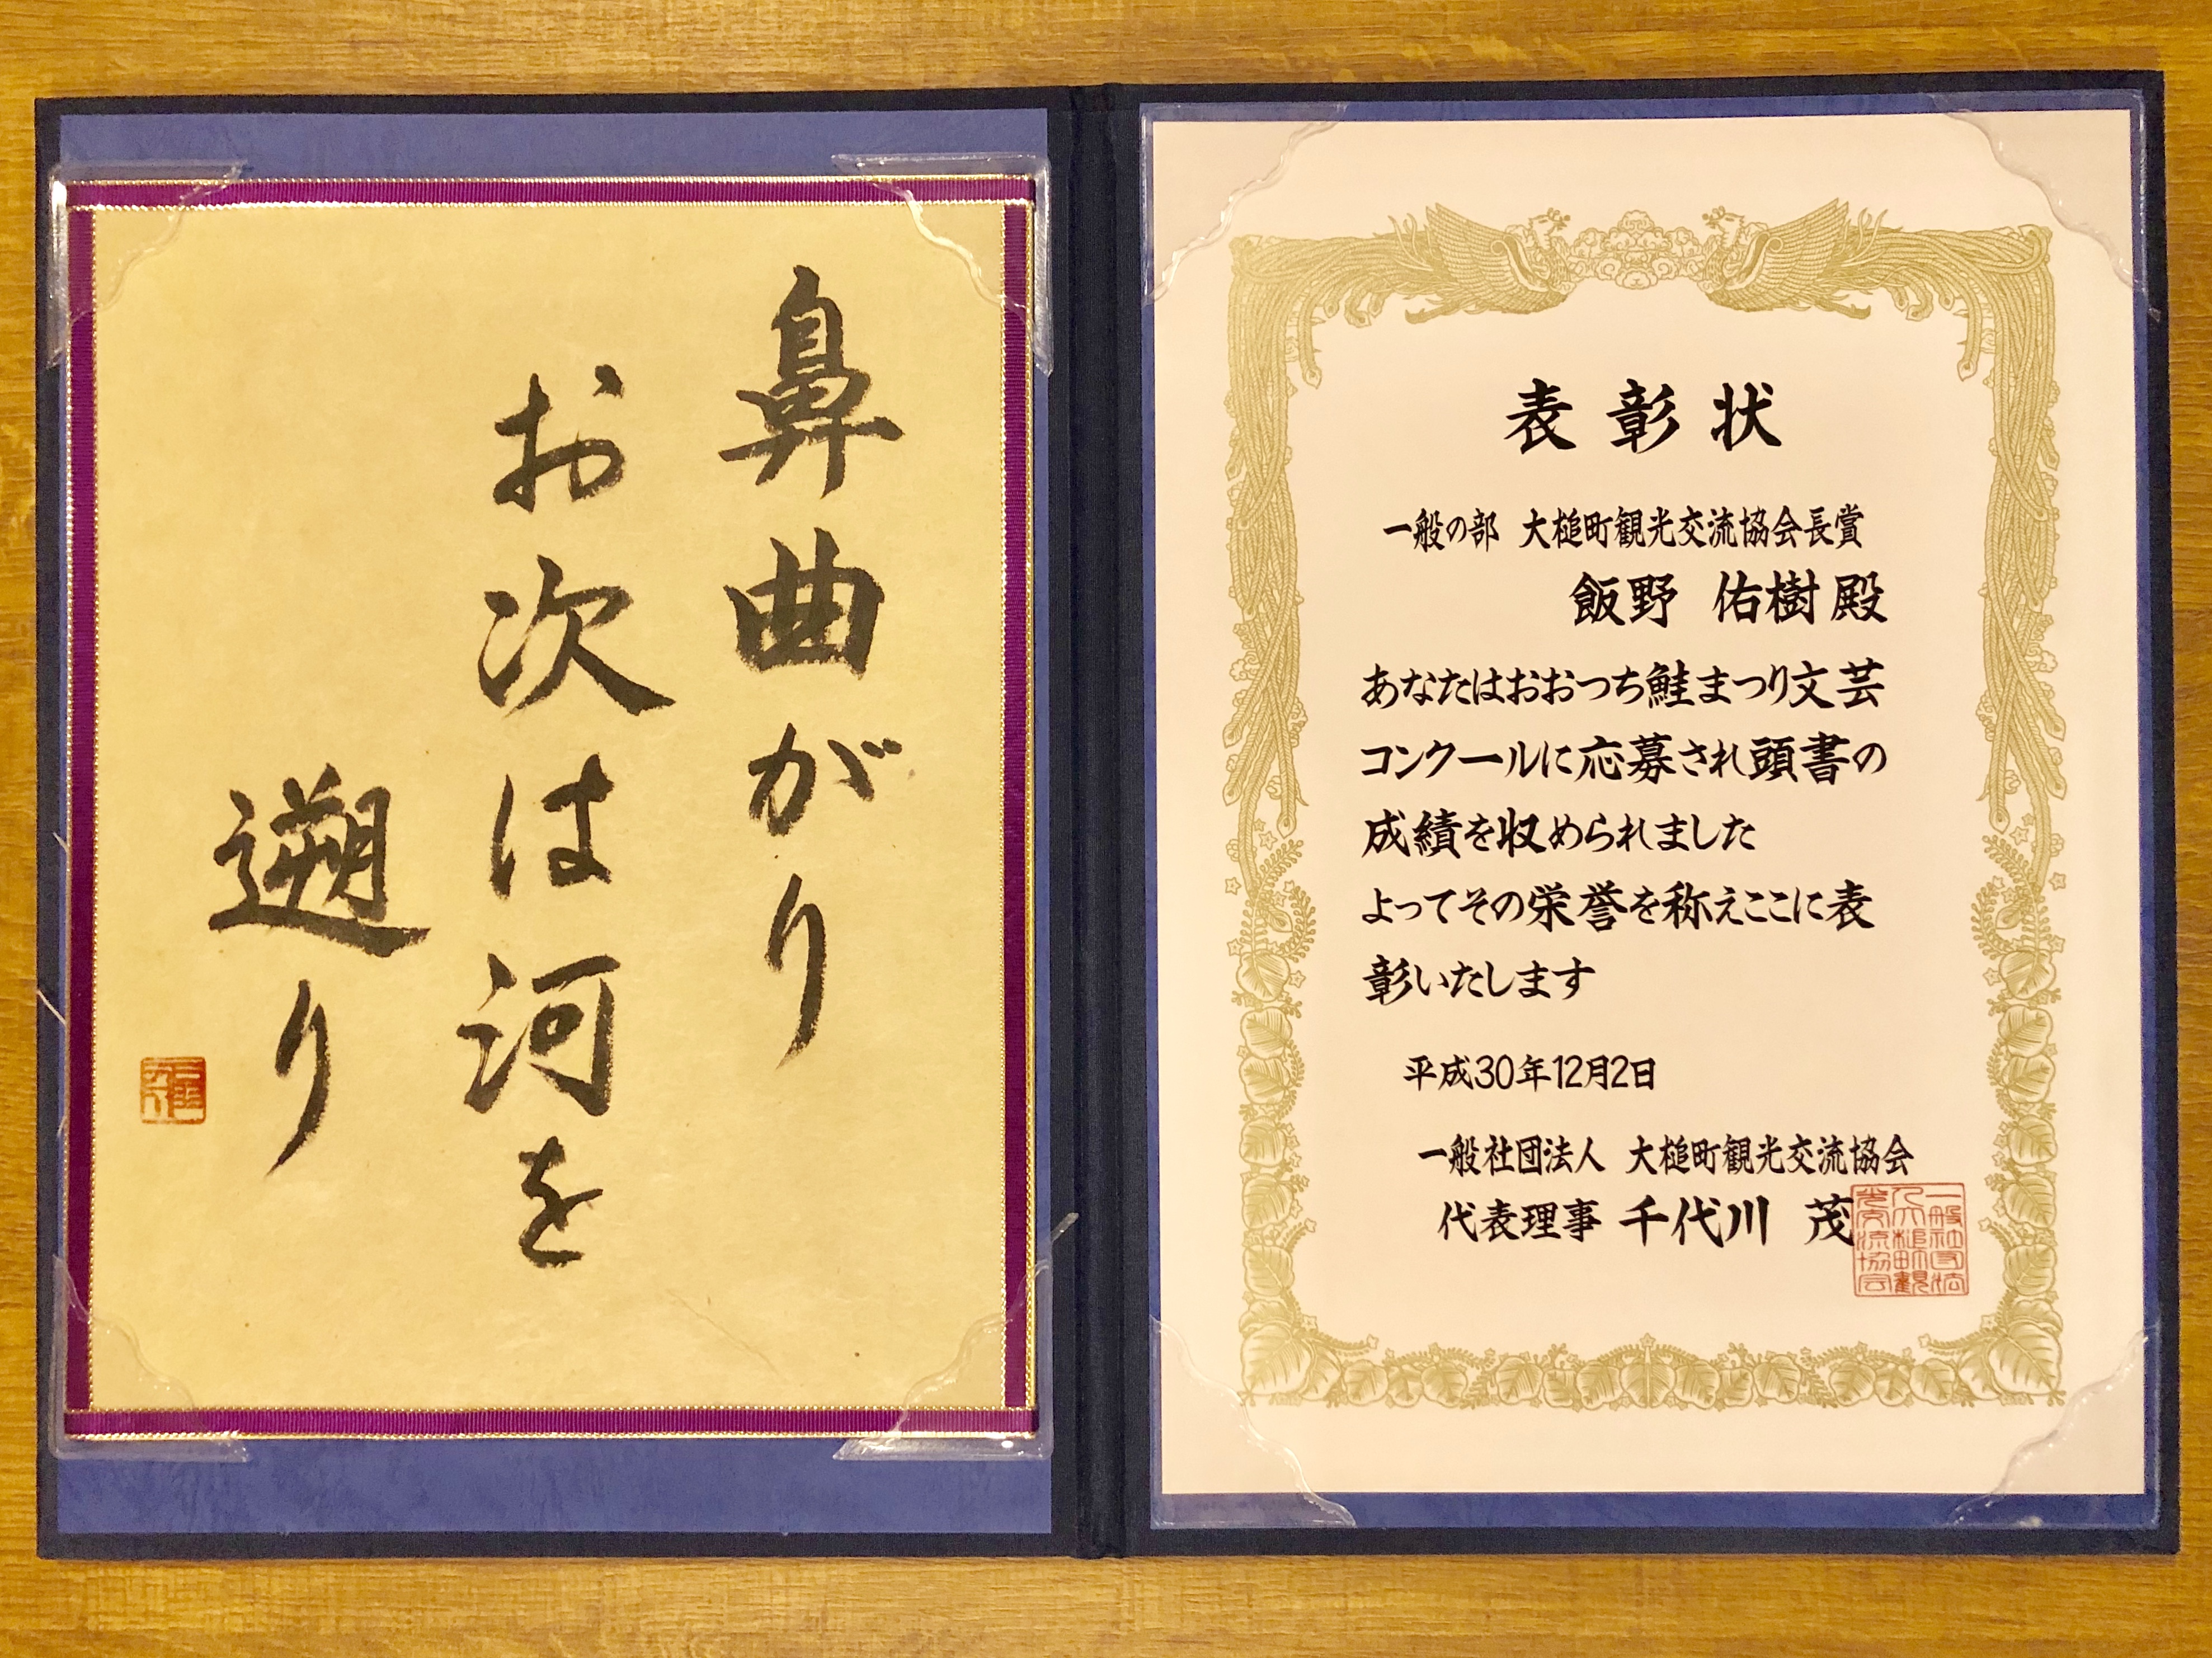 鼻曲がり
お次は河を
遡り
表彰状
一般の部 大槌町観光交流協会長賞
飯野 佑樹 殿
あなたはおおつち鮭まつり文芸
コンクールに応募され頭書の
成績を収められました
よってその栄誉を称えここに表
彰いたします
平成30年12月2日
一般社団法人 大槌町観光交流協会
代表理事 千代川 茂